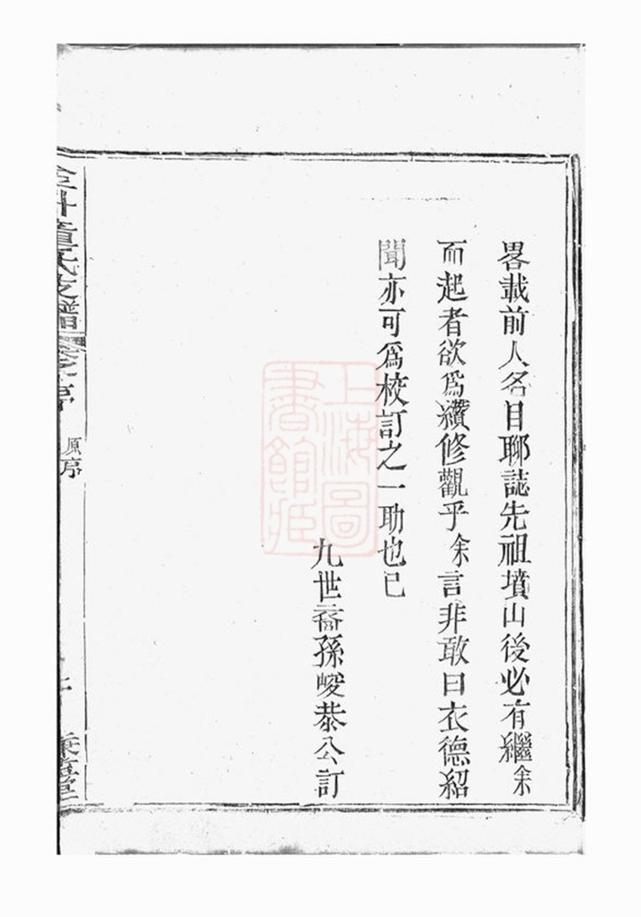 畧載前人名目聊誌先祖墳山後必有繼余
而起者欲爲纘修觀乎余言非敢曰衣德紹
聞亦可爲校訂之一助也已
九世裔孫峻恭公訂
章氏支譜
卷之序
原序
上海圖書館藏